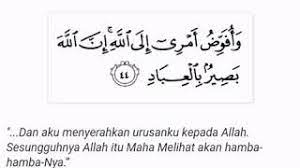 وَأُفَوِّضُ أَمْرِىٓ إِلَى ٱللَّهِ ۚ إِنَّ ٱللَّهَ
بَصِيرٌۢ بِٱلْعِبَادِ ﴿٤٤﴾
"...Dan aku menyerahkan urusanku kepada Allah.
Sesungguhnya Allah itu Maha Melihat akan hamba-
hamba-Nya.”